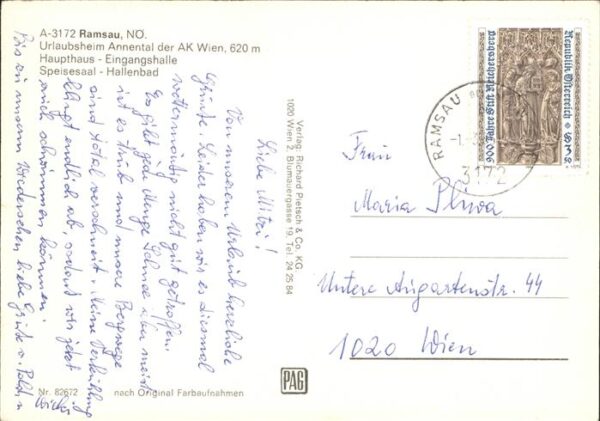 A-3172 Ramsau, NÖ.
Urlaubsheim Annental der AK Wien, 620 m
Haupthaus - Eingangshalle
Speisesaal - Hallenbad
Liebe Mitzi!
Von unserem Urlaub herzliche
Grüsse. Leider haben wir es diesmal
wettermäßig nicht gut getroffen.
Es gibt jede Menge Schnee aber meist
ist es trüb und unsere Bergwege
sind total verschneit. Meine Verkühlung
klingt endlich ab, sodass wir jetzt
auch schwimmen können.
Bis zu unserem Wiedersehen liebe Grüße v. Poldi u
Verlag: Richard Pietsch & Co. KG.
1020 Wien 2, Blumauergasse 19, Tel. 24 25 84
Nr. 82672
nach Original Farbaufnahmen
PAG
Republik Österreich
900 Jahre Stift Reichersberg
RAMSAU
3172
Frau
Maria
Untere Augartenstr. 44
1020 Wien